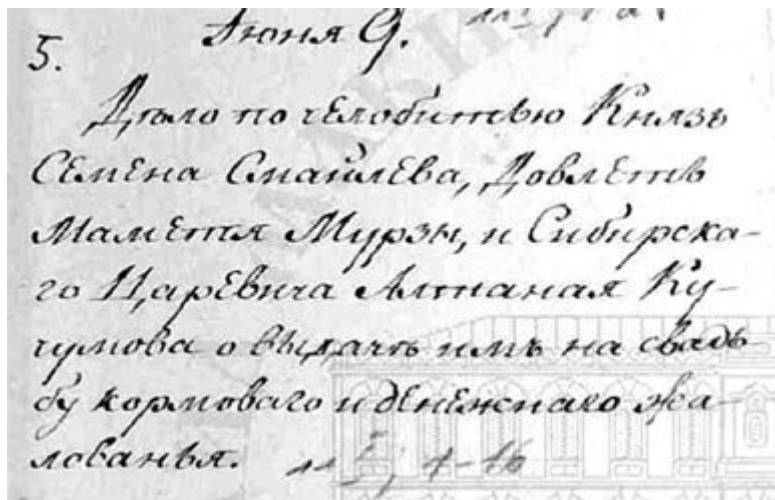 Июня 9.
5.
Дѣло по челобитью Князь
Семена Смаилева, Довлетъ
Маметя Мурзы, и Сибирска-
го Царевича Алтаная Ку-
чумова о выдачѣ имъ на свадь
бу кормоваго и денежнаго жа-
лованья.